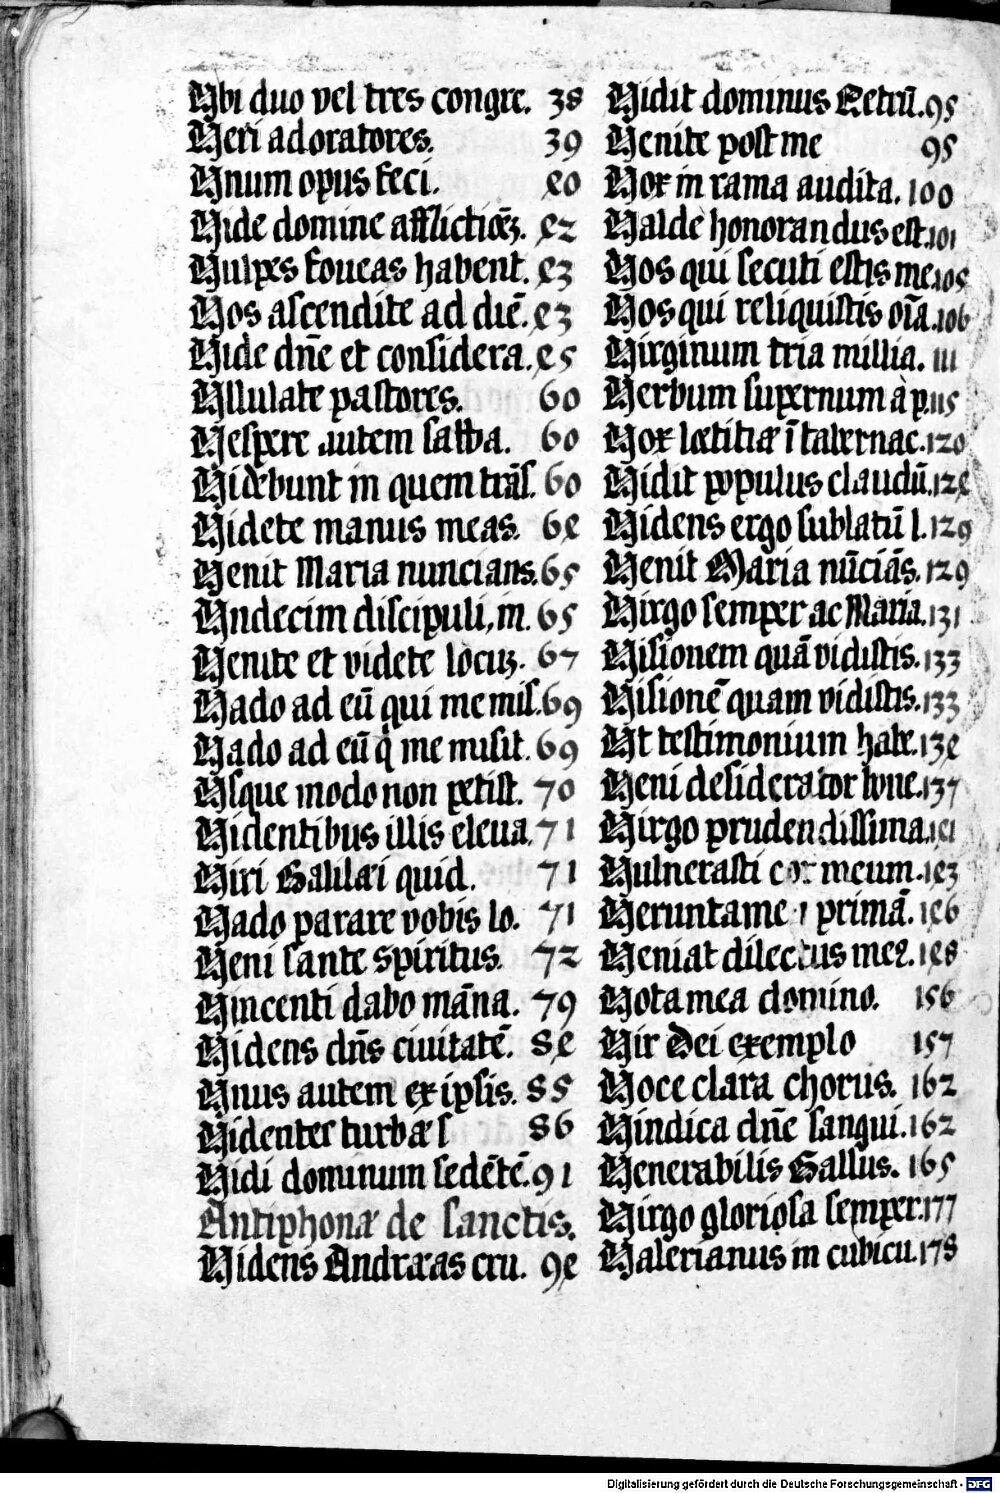 Ubi duo vel tres congre. 38
Veri adoratores. 39
Unum opus feci. 40
Vide domine afflictiõẽ. 42
Vulpes foueas habent. 43
Vos ascendite ad diẽ. 43
Vide dñe et considera. 45
Ullulate pastores. 60
Vespere autem sabba. 60
Videbunt in quem trãs. 60
Videte manus meas. 64
Venit Maria nuncians. 65
Undecim discipuli, in. 65
Venite et videte locuȝ. 67
Vado ad eũ qui me mis. 69
Vado ad eũ q̇ me misit. 69
Usque modo non petist. 70
Videntibus illis eleua. 71
Viri Galilæi quid. 71
Vado parare vobis lo. 71
Veni sante spiritus. 72
Vincenti dabo mãna. 79
Videns dñs ciuitatẽ. 84
Unus autem ex ipsis. 85
Videntes turbæ s 86
Vidi dominum sedẽtẽ. 91
Antiphonæ de sanctis.
Videns Andræas cru. 94
Vidit dominus Petrũ. 95
Venite post me 95
Vox in rama audita. 100
Valde honorandus est. 101
Vos qui secuti estis me. 105
Vos qui reliquistis oĩa. 106
Virginum tria millia. 111
Verbum supernum à p. 115
Vox lœtitiæ ĩ tabernac. 120
Vidit populus claudũ. 124
Videns ergo sublatũ l. 129
Venit Maria nũciãs. 129
Virgo semper ac Maria. 131
Visionem quã vidistis. 133
Visionẽ quam vidistis. 133
Ut testimonium habe. 134
Veni desiderator bone. 137
Virgo prudendissima. 141
Vulnerasti cor meum. 143
Veruntamen primã. 146
Veniat dilectus meꝰ. 148
Vota mea domino. 156
Vir Dei exemplo 157
Voce clara chorus. 162
Vindica dñe sangui. 162
Venerabilis Gallus. 165
Virgo gloriosa semper. 177
Valerianus in cubicu. 178
Digitalisierung gefördert durch die Deutsche Forschungsgemeinschaft - DFG